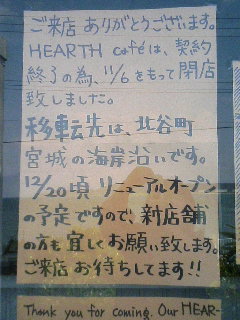 ご来店 ありがとうございます。
HEARTH caféは、契約
終了の為、11/6をもって閉店
致しました。
移転先は、北谷町
宮城の海岸沿いです。
12/20頃 リニューアルオープン
の予定ですので、新店舗
の方も宜しくお願い致します。
ご来店お待ちしてます!!
Thank you for coming. Our HEAR-